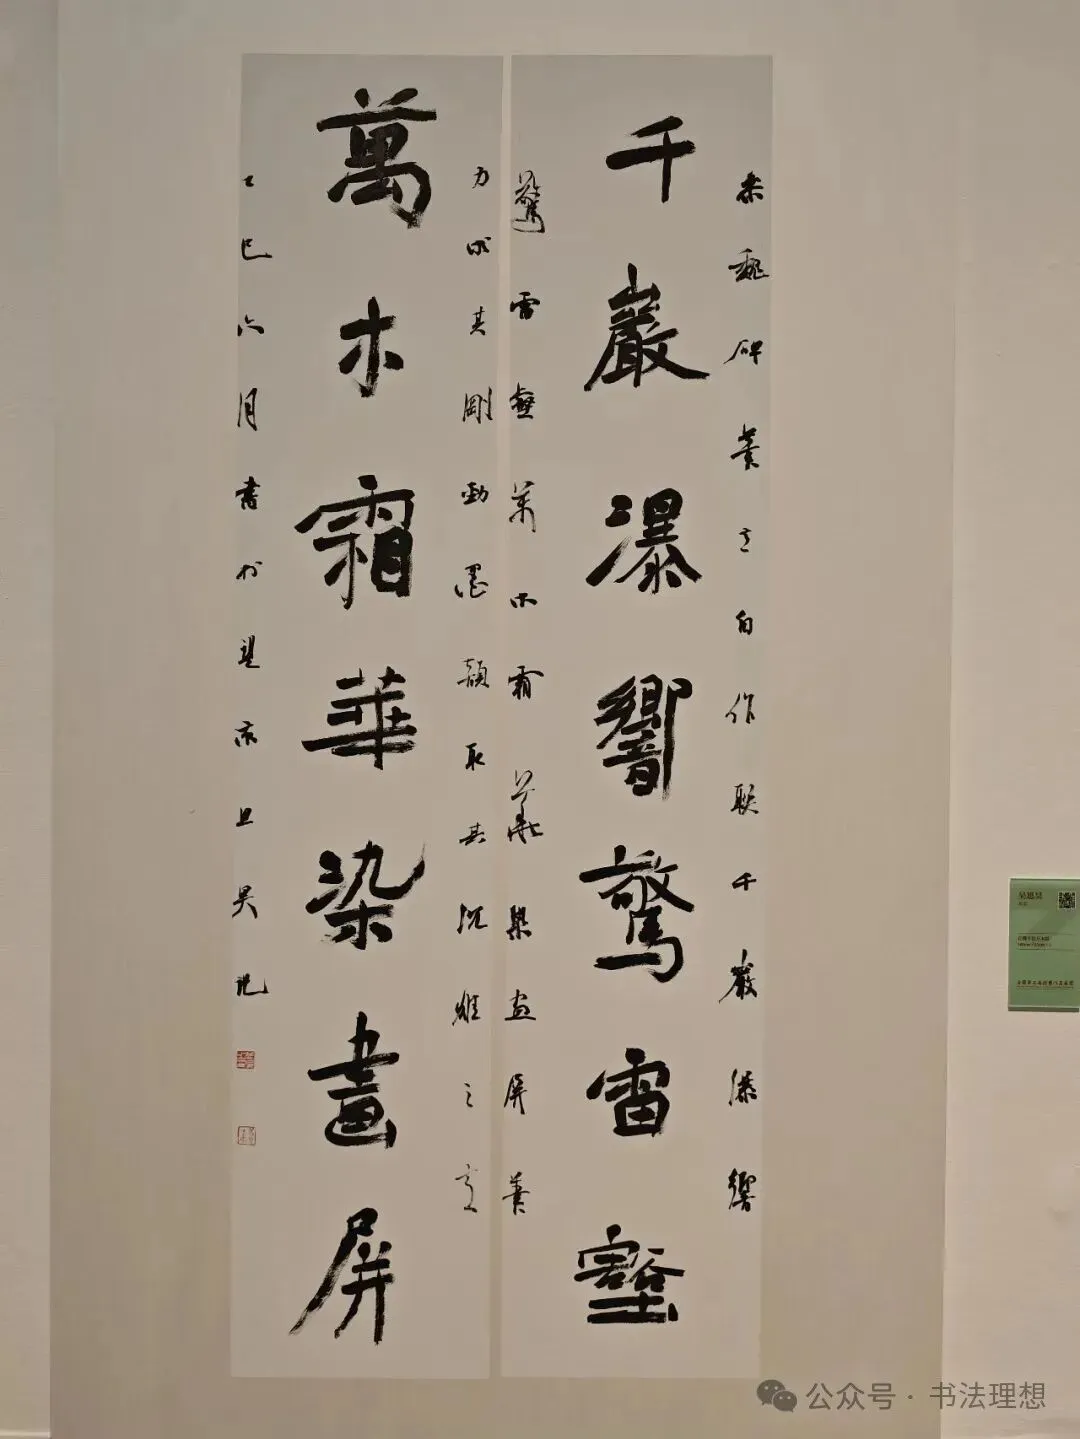 魏碑筆意自作联千巖瀑響
千巖瀑響驚雷壑
驚雷壑萬木霜華染畫屏筆
力求其剛勁墨韻取其沉雄之意
萬木霜華染畫屏
乙巳六月書於望京吳
公众号·书法理想